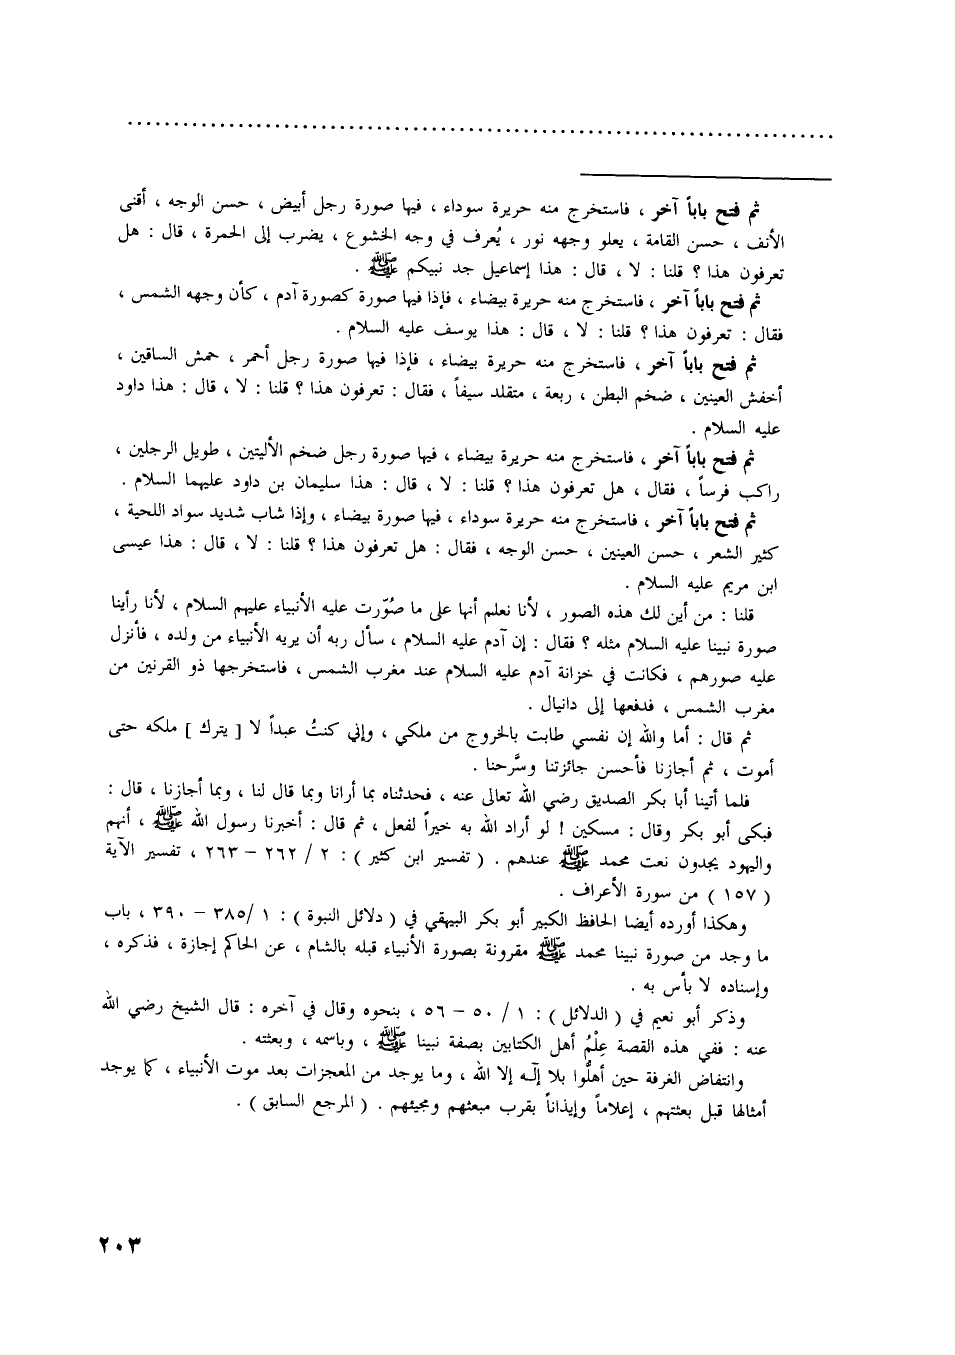 ثم فتح باباً آخر ، فاستخرج منه حريرة سوداء ، فيها صورة رجل أبيض ، حسن الوجه ، أقنى
الأنف ، حسن القامة ، يعلو وجهه نور ، يُعرف في وجه الخشوع ، يضرب إلى الحمرة ، قال : هل
تعرفون هذا ؟ قلنا : لا ، قال : هذا إسماعيل جد نبيكم ﷺ .
ثم فتح باباً آخر ، فاستخرج منه حريرة بيضاء ، فإذا فيها صورة كصورة آدم ، كأن وجهه الشمس ،
فقال : تعرفون هذا ؟ قلنا : لا ، قال : هذا يوسف عليه السلام .
ثم فتح باباً آخر ، فاستخرج منه حريرة بيضاء ، فإذا فيها صورة رجل أحمر ، حمش الساقين ،
أخفش العينين ، ضخم البطن ، ربعة ، متقلد سيفاً ، فقال : تعرفون هذا ؟ قلنا : لا ، قال : هذا داود
عليه السلام .
ثم فتح باباً آخر ، فاستخرج منه حريرة بيضاء ، فيها صورة رجل ضخم الأليتين ، طويل الرجلين ،
راكب فرساً ، فقال ، هل تعرفون هذا ؟ قلنا : لا ، قال : هذا سليمان بن داود عليهما السلام .
ثم فتح باباً آخر ، فاستخرج منه حريرة سوداء ، فيها صورة بيضاء ، وإذا شاب شديد سواد اللحية ،
كثير الشعر ، حسن العينين ، حسن الوجه ، فقال : هل تعرفون هذا ؟ قلنا : لا ، قال : هذا عيسى
ابن مريم عليه السلام .
قلنا : من أين لك هذه الصور ، لأنا نعلم أنها على ما صُوّرت عليه الأنبياء عليهم السلام ، لأنا رأينا
صورة نبينا عليه السلام مثله ؟ فقال : إن آدم عليه السلام ، سأل ربه أن يريه الأنبياء من ولده ، فأنزل
عليه صورهم ، فكانت في خزانة آدم عليه السلام عند مغرب الشمس ، فاستخرجها ذو القرنين من
مغرب الشمس ، فدفعها إلى دانيال .
ثم قال : أما والله إن نفسي طابت بالخروج من ملكي ، وإني كنتُ عبداً لا [ يترك ] ملكه حتى
أموت ، ثم أجازنا فأحسن جائزتنا وسرَّحنا .
فلما أتينا أبا بكر الصديق رضي الله تعالى عنه ، فحدثناه بما أرانا وبما قال لنا ، وبما أجازنا ، قال :
فبكى أبو بكر وقال : مسكين ! لو أراد الله به خيراً لفعل ، ثم قال : أخبرنا رسول الله ﷺ ، أنهم
واليهود يجدون نعت محمد ﷺ عندهم . ( تفسير ابن كثير ) : ٢ / ٢٦٢ – ٢٦٣ ، تفسير الآية
( ١٥٧ ) من سورة الأعراف .
وهكذا أورده أيضا الحافظ الكبير أبو بكر البيهقي في ( دلائل النبوة ) : ١ /٣٨٥ – ٣٩٠ ، باب
ما وجد من صورة نبينا محمد ﷺ مقرونة بصورة الأنبياء قبله بالشام ، عن الحاكم إجازة ، فذكره ،
وإسناده لا بأس به .
وذكر أبو نعيم في ( الدلائل ) : ١ / ٥٠ – ٥٦ ، بنحوه وقال في آخره : قال الشيخ رضي الله
عنه : ففي هذه القصة عِلْمُ أهل الكتابين بصفة نبينا ﷺ ، وباسمه ، وبعثته .
وانتفاض الغرفة حين أهلُّوا بلا إلٰه إلا الله ، وما يوجد من المعجزات بعد موت الأنبياء ، كما يوجد
أمثالها قبل بعثتهم ، إعلاماً وإيذاناً بقرب مبعثهم ومجيئهم . ( المرجع السابق ) .
٢٠٣